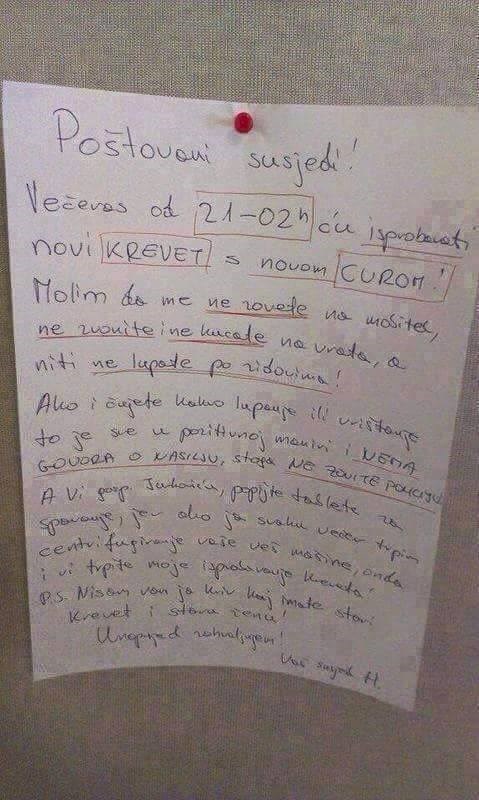 Poštovani susjedi!
Večeras od 21-02h ću isprobavati
novi KREVET s novom CUROM!
Molim da me ne zovete na mobitel,
ne zvonite i ne kucate na vrata, a
niti ne lupate po zidovima!
Ako i čujete kakvo lupanje ili vrištanje
to je sve u pozitivnoj maniri i NEMA
GOVORA O NASILJU, stoga NE ZOVITE POLICIJU.
A Vi gosp. Jukoviću, popijte tablete za
spavanje, jer ako ja svaku večer trpim
centrifugiranje vaše veš mašine, onda
i vi trpite moje isprobavanje kreveta!
P.S. Nisam vam ja kriv kaj imate stari
krevet i staru ženu!
Unaprijed zahvaljujem!
Vaš susjed H.